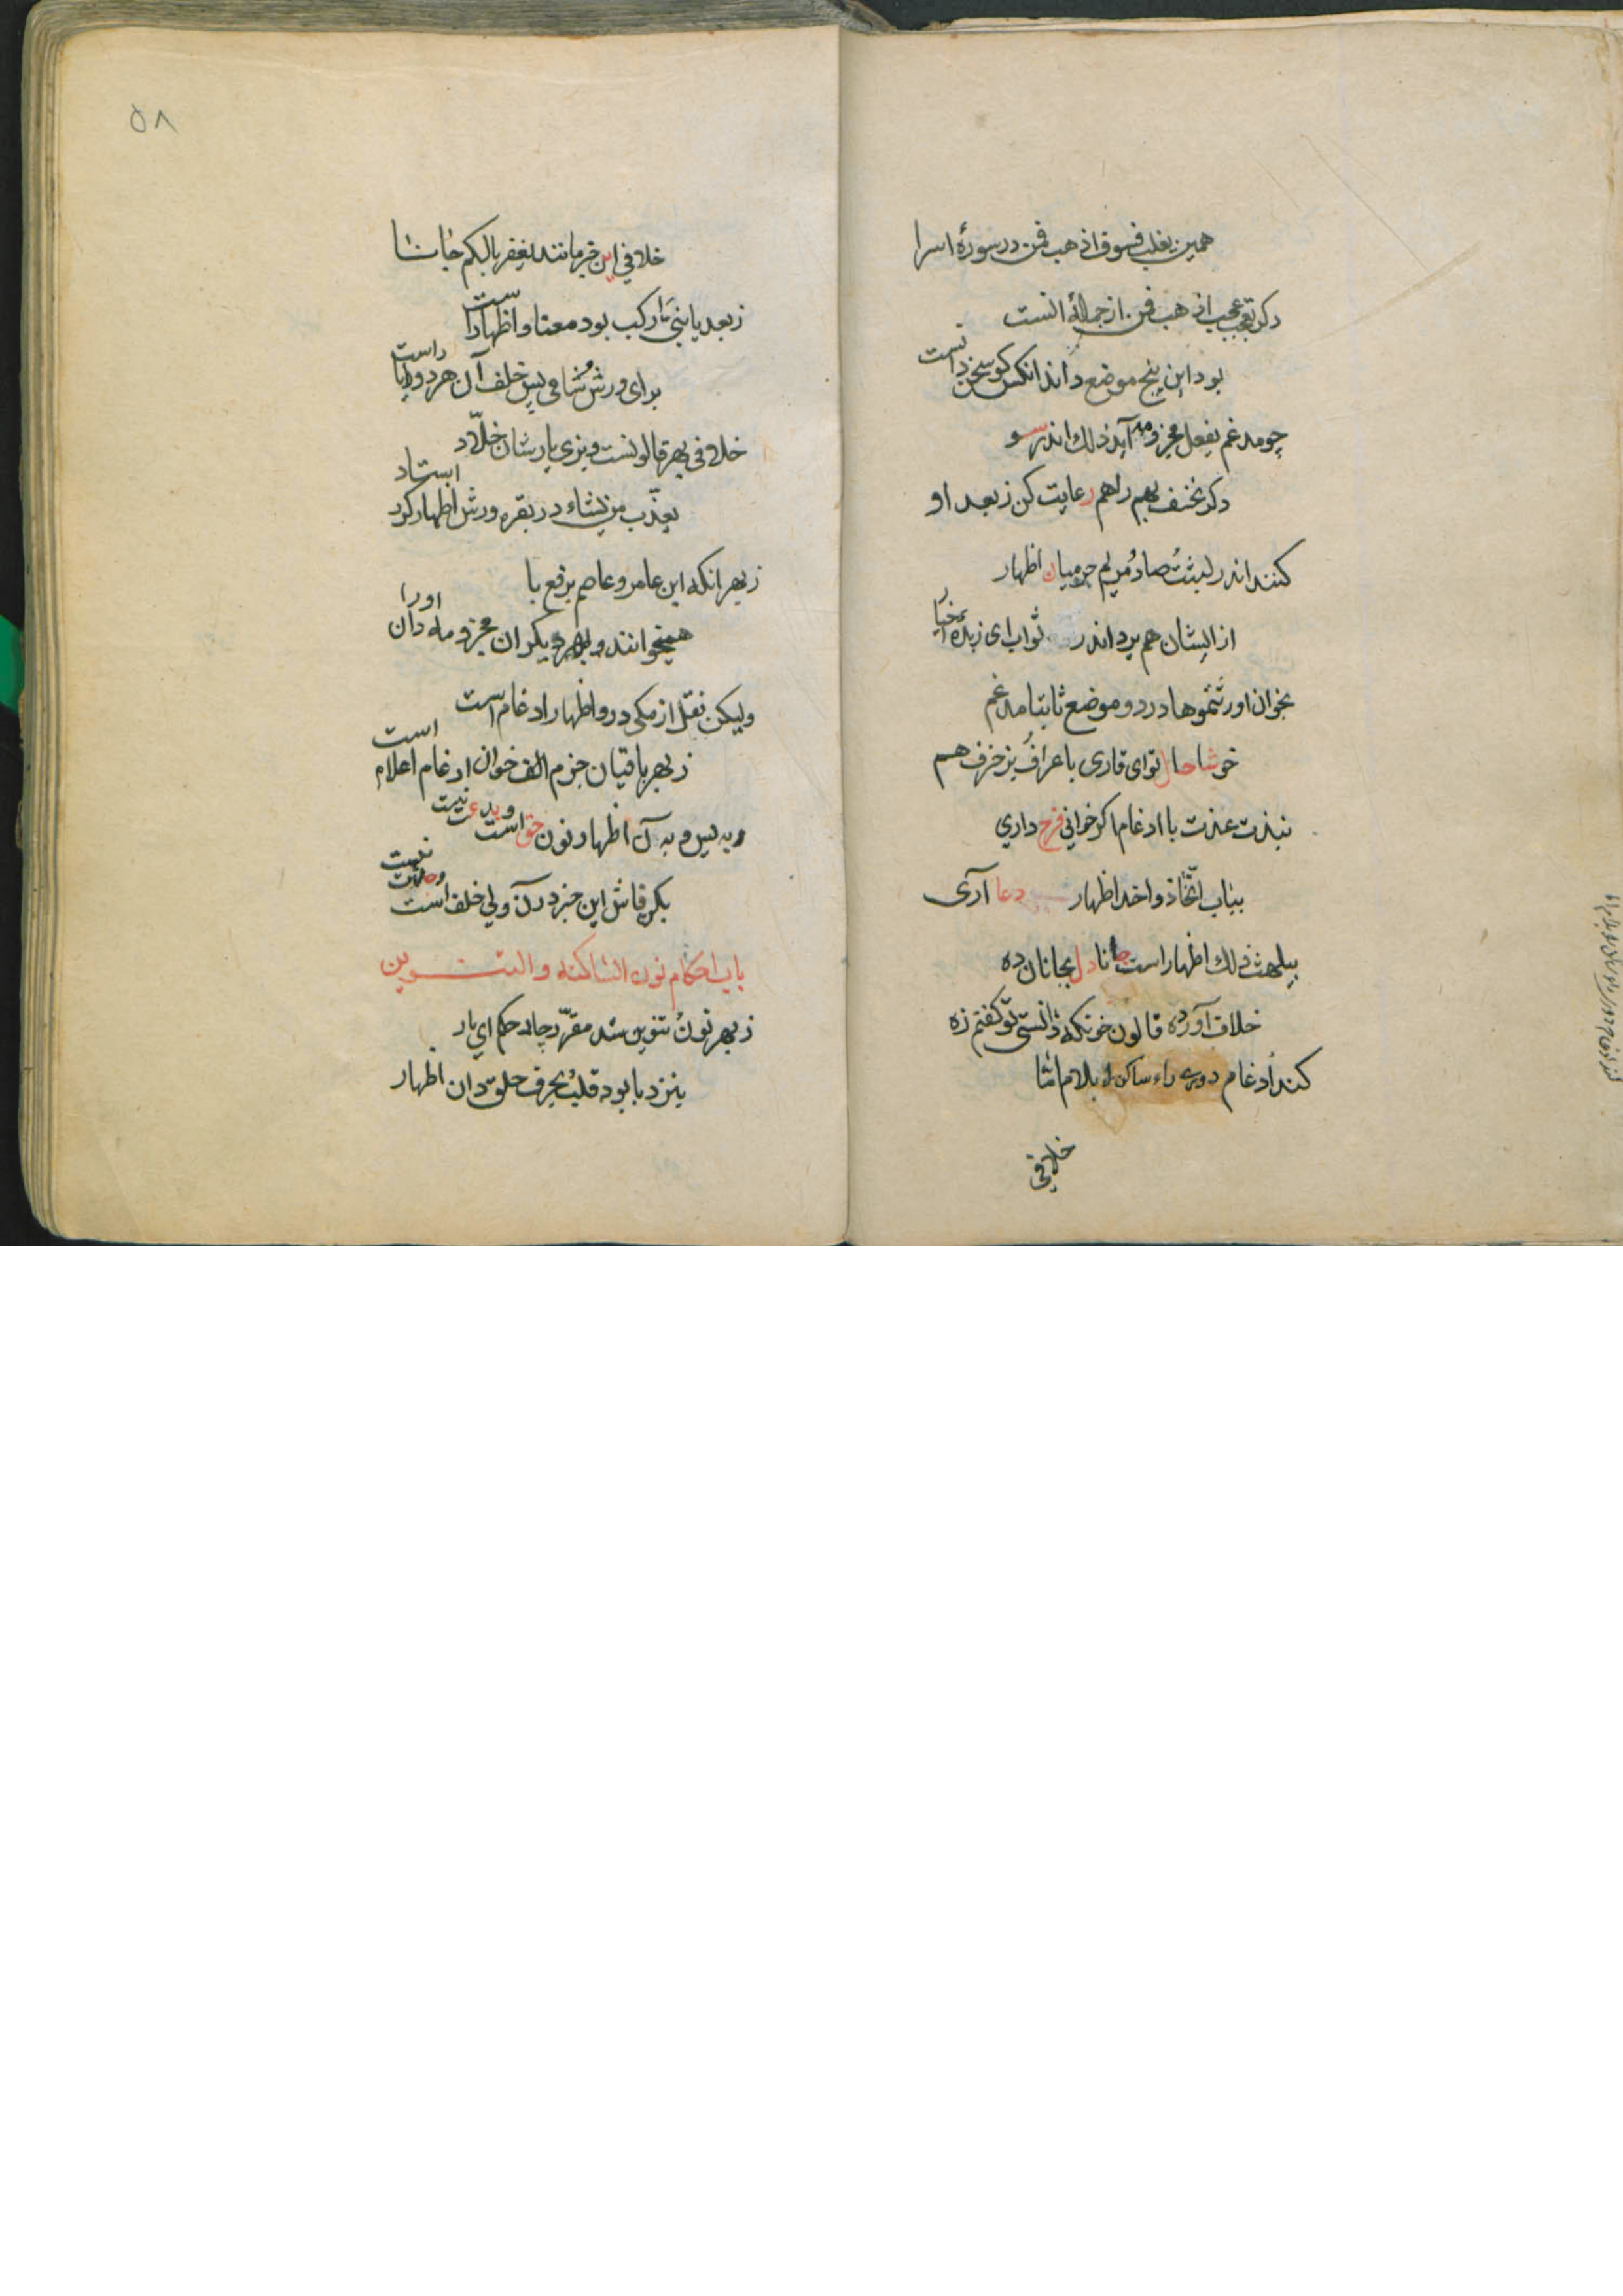 همین یغلب فسوف اذهب فمن در سورهٔ اسرا
دکر تعجب عجب اذهب فمن از جملهٔ انست
بود این پنج موضع داند انکس کو سخن دانست
چو مدغم یفعل مجزوم آید ذلك اندر سو
دکر نخسف بهم را هم رعایت کن ز بعد او
کنند اندر لبثت صاد مریم حرمیان اظهار
از ایشان هم یرد اندر ثواب ای زبدهٔ اخیار
بخوان اورثتموها در دو موضع ثابتا مدغم
خوشا حال تو ای قاری باعراف بزخرف هم
نبذت عذت با ادغام اکر خوانی فرح داری
بباب اتخاذ و اخذ اظهار دعا آری
بیلهث ذلك اظهار است جانا دل بجانان ده
خلاف آورده قالون خونکه دانستی تو کفتم زه
کند ادغام دوری راء ساکن را بلام اما
خلافی
۵۸
خلافی این خبر مانند یغفر بالبکم حاشا
ز بعد یا بنی یا ارکب بود معنا و اظهار است
برای ورش شامی پس خلف آن هر دو را با راست
خلافی بهر قالونست و بزی یار شان خلاد
یعذب من یشاء در بقره ورش اظهار کرد استاد
ز بهر انکه ابن عامر و عاصم برفع با
همیخوانند و بهر دیکران مجزوم دان اورا
ولیکن نقل از مکی درو اظهار ادغام است
ز بهر باقیان جزم الف خوان ادغام اعلام است
به یس و به آن اظهار نون حق است و بدعت نیست
خلف است
باب احکام نون الساکنه والتنوین
ز بهر نون تنوین شد مقرر چار حکم ای یار
بنزد با بود قلب بحرف حلق دان اظهار